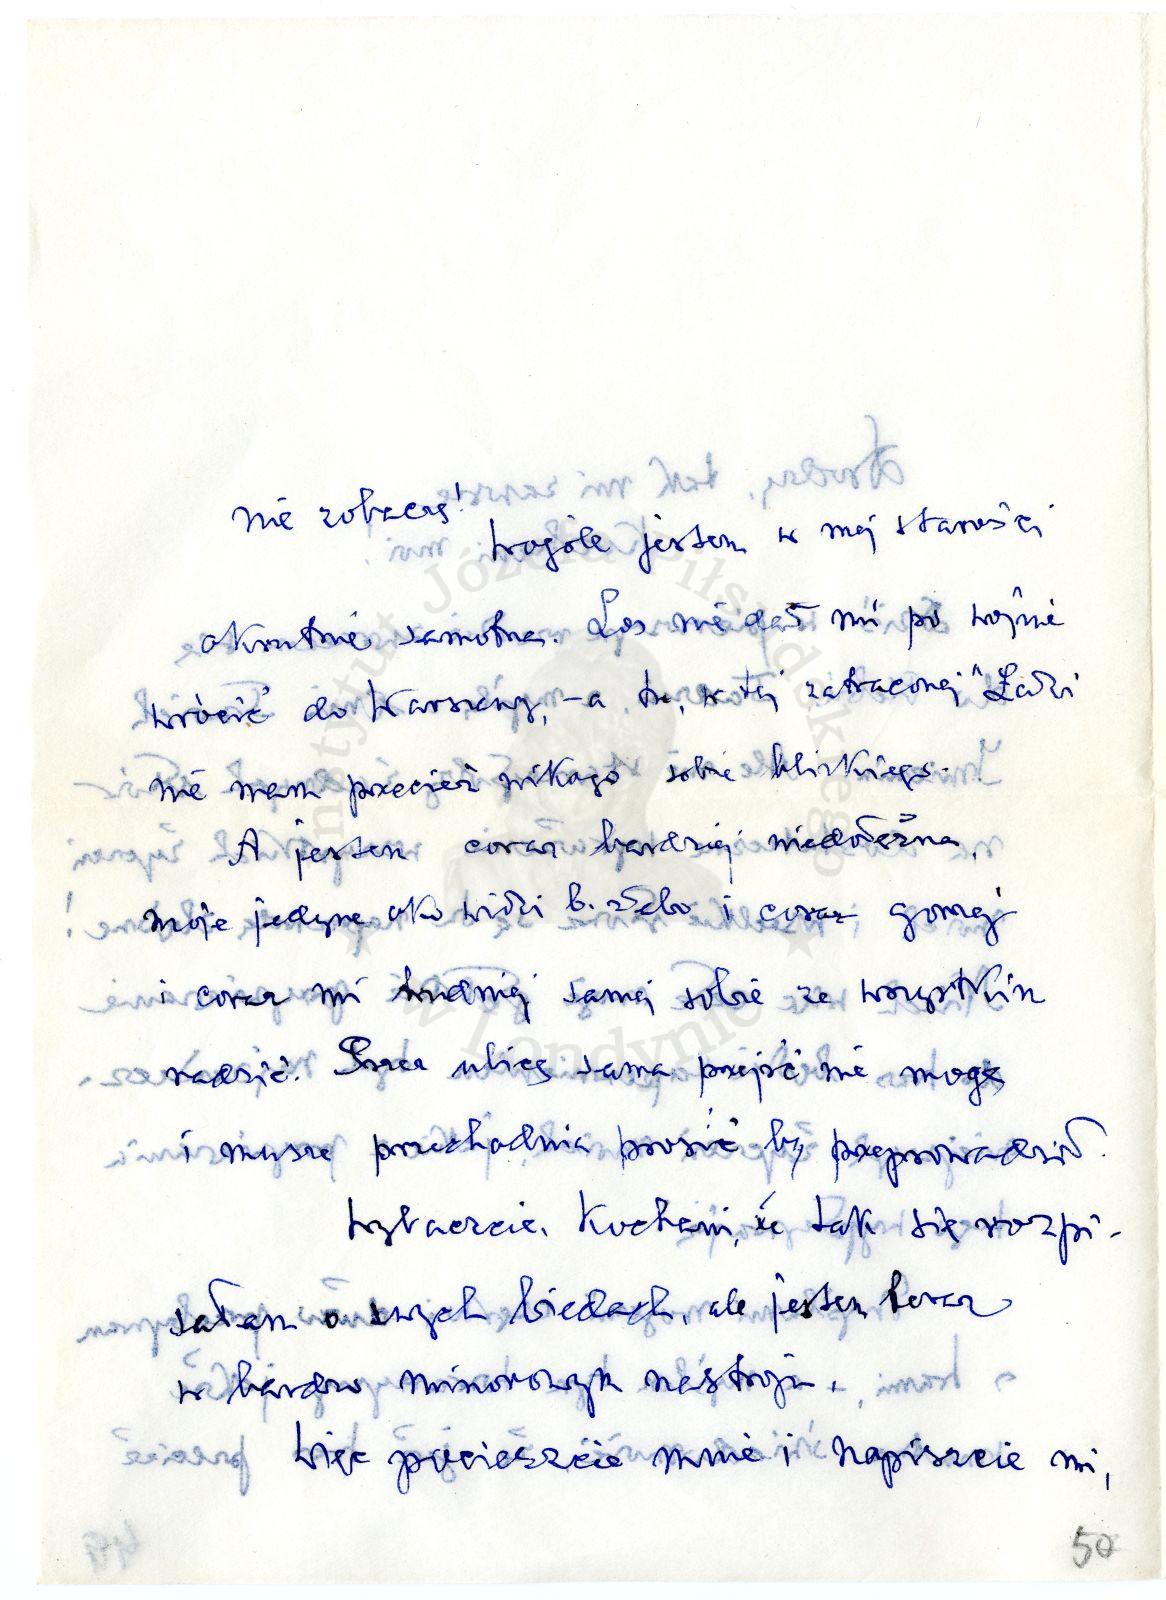 nie zobaczę!
Wogóle jestem w mej starości
okrutnie samotna. Los nie dał mi po wojnie
wrócić do Warszawy, – a tu, w tej zatraconej "Łodzi
nie mam przecież nikogo sobie bliskiego.
A jestem coraz bardziej niedołężna,
moje jedyne oko widzi b. słabo i coraz gorzej
i coraz mi trudniej samej sobie ze wszystkim
radzić. Przez ulicę sama przejść nie mogę
i muszę przechodnia prosić by przeprowadził.
Wybaczcie, Kochani, że tak się rozpi-
sałam o swych biedach, ale jestem teraz
w bardzo minorowym nastroju.
Więc pocieszcie mnie i napiszcie mi,
50
Instytut Józefa Piłsudskiego
w Londynie